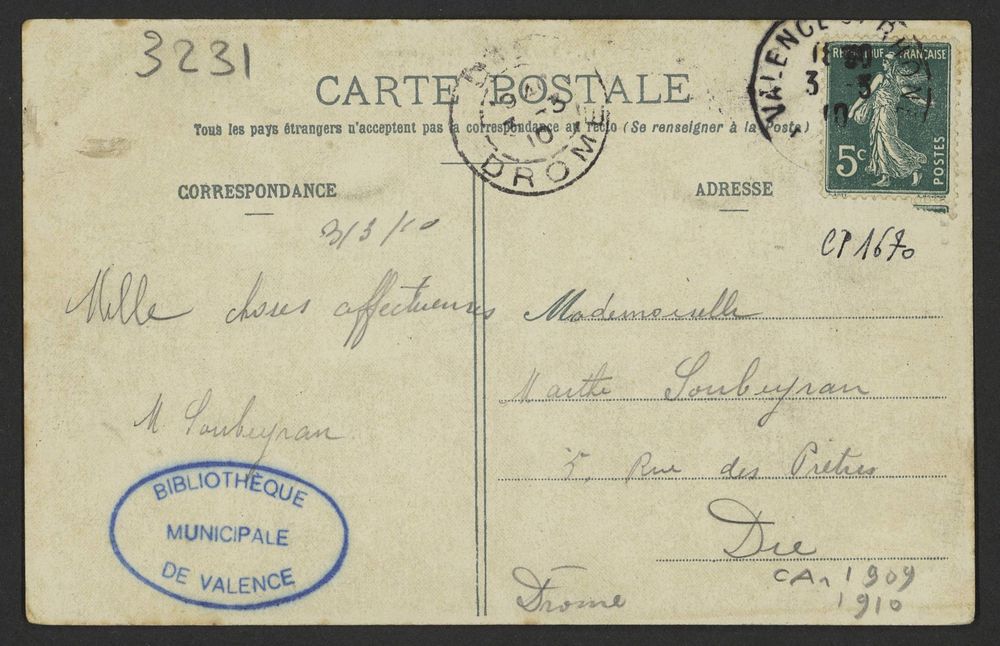 3231
CARTE POSTALE
Tous les pays étrangers n'acceptent pas la correspondance au recto (Se renseigner à la Poste)
VALENCE S. RHONE
18 30
3 -3
10
REPUBLIQUE FRANÇAISE
5c
POSTES
3
10
DROME
CORRESPONDANCE
3/3/10
Mille choses affectueuses
M Soubeyran
BIBLIOTHÈQUE
MUNICIPALE
DE VALENCE
ADRESSE
CP 1670
Mademoiselle
Marthe Soubeyran
5, Rue des Prêtres
Die
Drome
1909
1910